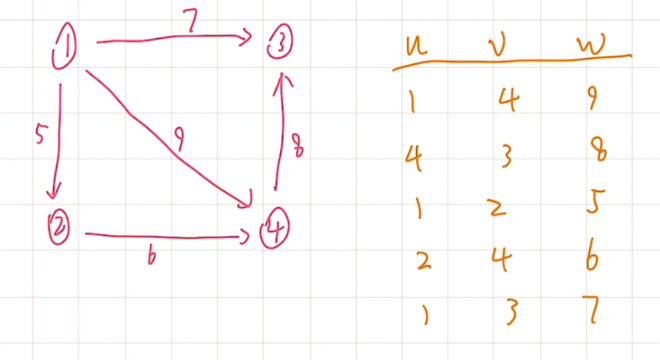 ① 7 ③
5 9 8
② 6 ④
u v w
1 4 9
4 3 8
1 2 5
2 4 6
1 3 7